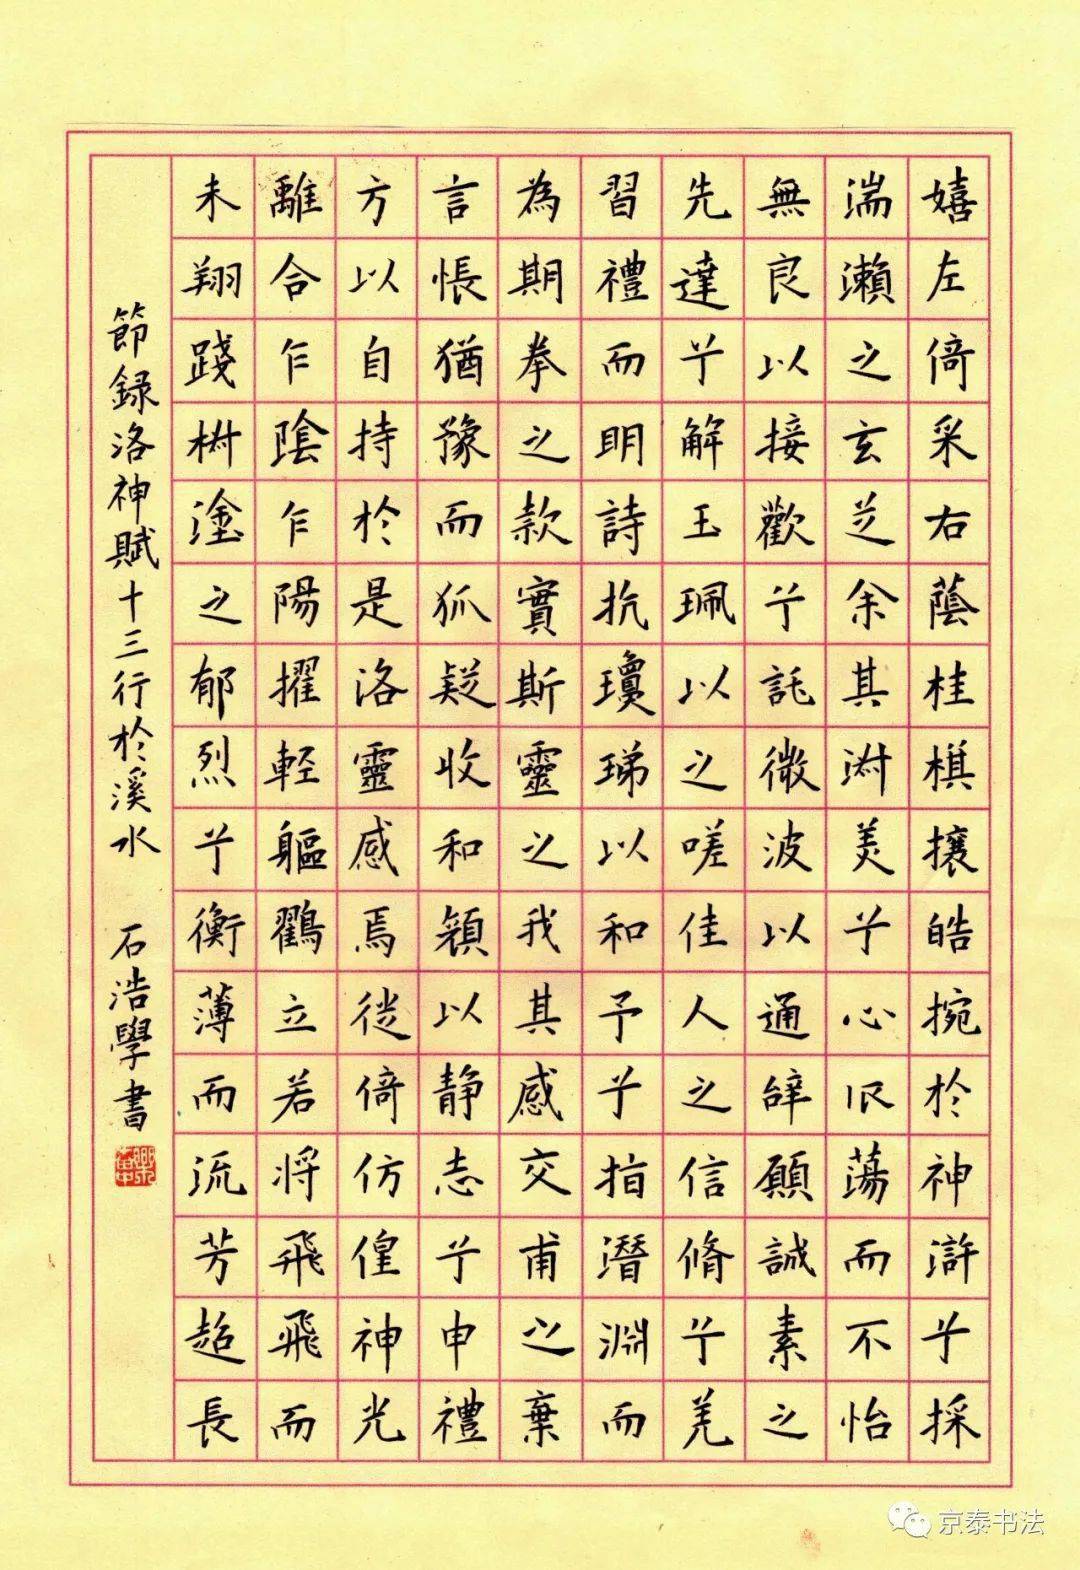 嬉左倚采右蔭桂棋攘皓捥於神滸兮採
湍瀨之玄芝余其淑美兮心振蕩而不怡
無良以接歡兮託微波以通辭願誠素之
先達兮解玉珮以之嗟佳人之信脩兮羌
習禮而明詩抗瓊珶以和予兮指潛淵而
為期拳之款實斯靈之我其感交甫之棄
言悵猶豫而狐疑收和顏以静志兮申禮
方以自持於是洛靈感焉徙倚仿偟神光
離合乍陰乍陽擢輕軀鶴立若將飛飛而
未翔踐椒塗之郁烈兮衡薄而流芳超長
節録洛神賦十三行於溪水 石浩學書
京泰书法